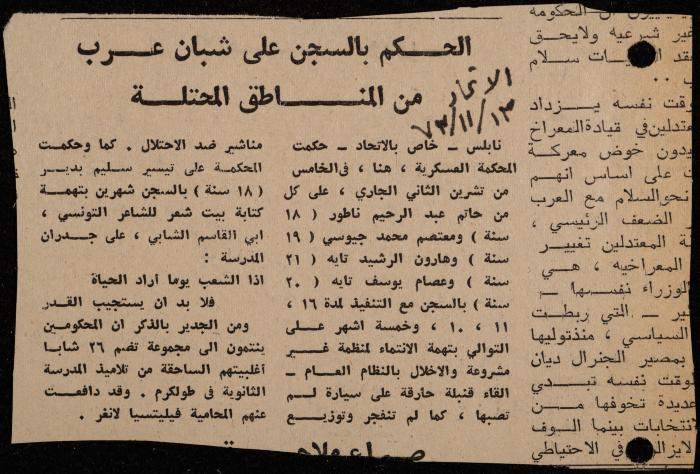 الحكم بالسجن على شبان عرب
من المناطق المحتلة
الاتحاد
٧٣/١١/١٣
نابلس – خاص بالاتحاد – حكمت
المحكمة العسكرية ، هنا ، في الخامس
من تشرين الثاني الجاري ، على كل
من حاتم عبد الرحيم ناطور ( ١٨
سنة ) ومعتصم محمد جيوسي ( ١٩
سنة ) وهارون الرشيد تايه ( ٢١
سنة ) وعصام يوسف تايه ( ٢٠
سنة ) بالسجن مع التنفيذ لمدة ١٦ ،
١١ ، ١٠ ، وخمسة اشهر على
التوالي بتهمة الانتماء لمنظمة غير
مشروعة والاخلال بالنظام العام –
القاء قنبلة حارقة على سيارة لم
تصبها ، كما لم تنفجر وتوزيع
مناشير ضد الاحتلال . كما وحكمت
المحكمة على تيسير سليم بدير
( ١٨ سنة ) بالسجن شهرين بتهمة
كتابة بيت شعر للشاعر التونسي ،
ابي القاسم الشابي ، على جدران
المدرسة :
اذا الشعب يوما أراد الحياة
فلا بد ان يستجيب القدر
ومن الجدير بالذكر ان المحكومين
ينتمون الى مجموعة تضم ٢٦ شابا
أغلبيتهم الساحقة من تلاميذ المدرسة
الثانوية في طولكرم . وقد دافعت
عنهم المحامية فيليتسيا لانغر .
الحكومه
غير شرعيه ولايحق
سلام
وقت نفسه يزداد
قيادة المعراخ
خوض معركة
على اساس انهم
نحو السلام مع العرب
الضعف الرئيسي ،
المعتدلين تغيير
المعراخيه ، هي
الوزراء نفسها –
– التي ربطت
السياسي ، منذ توليها
بمصير الجنرال ديان
لوقت نفسه تبدي
عديدة تخوفها من
انتخابات بينما الوف
في الاحتياطي